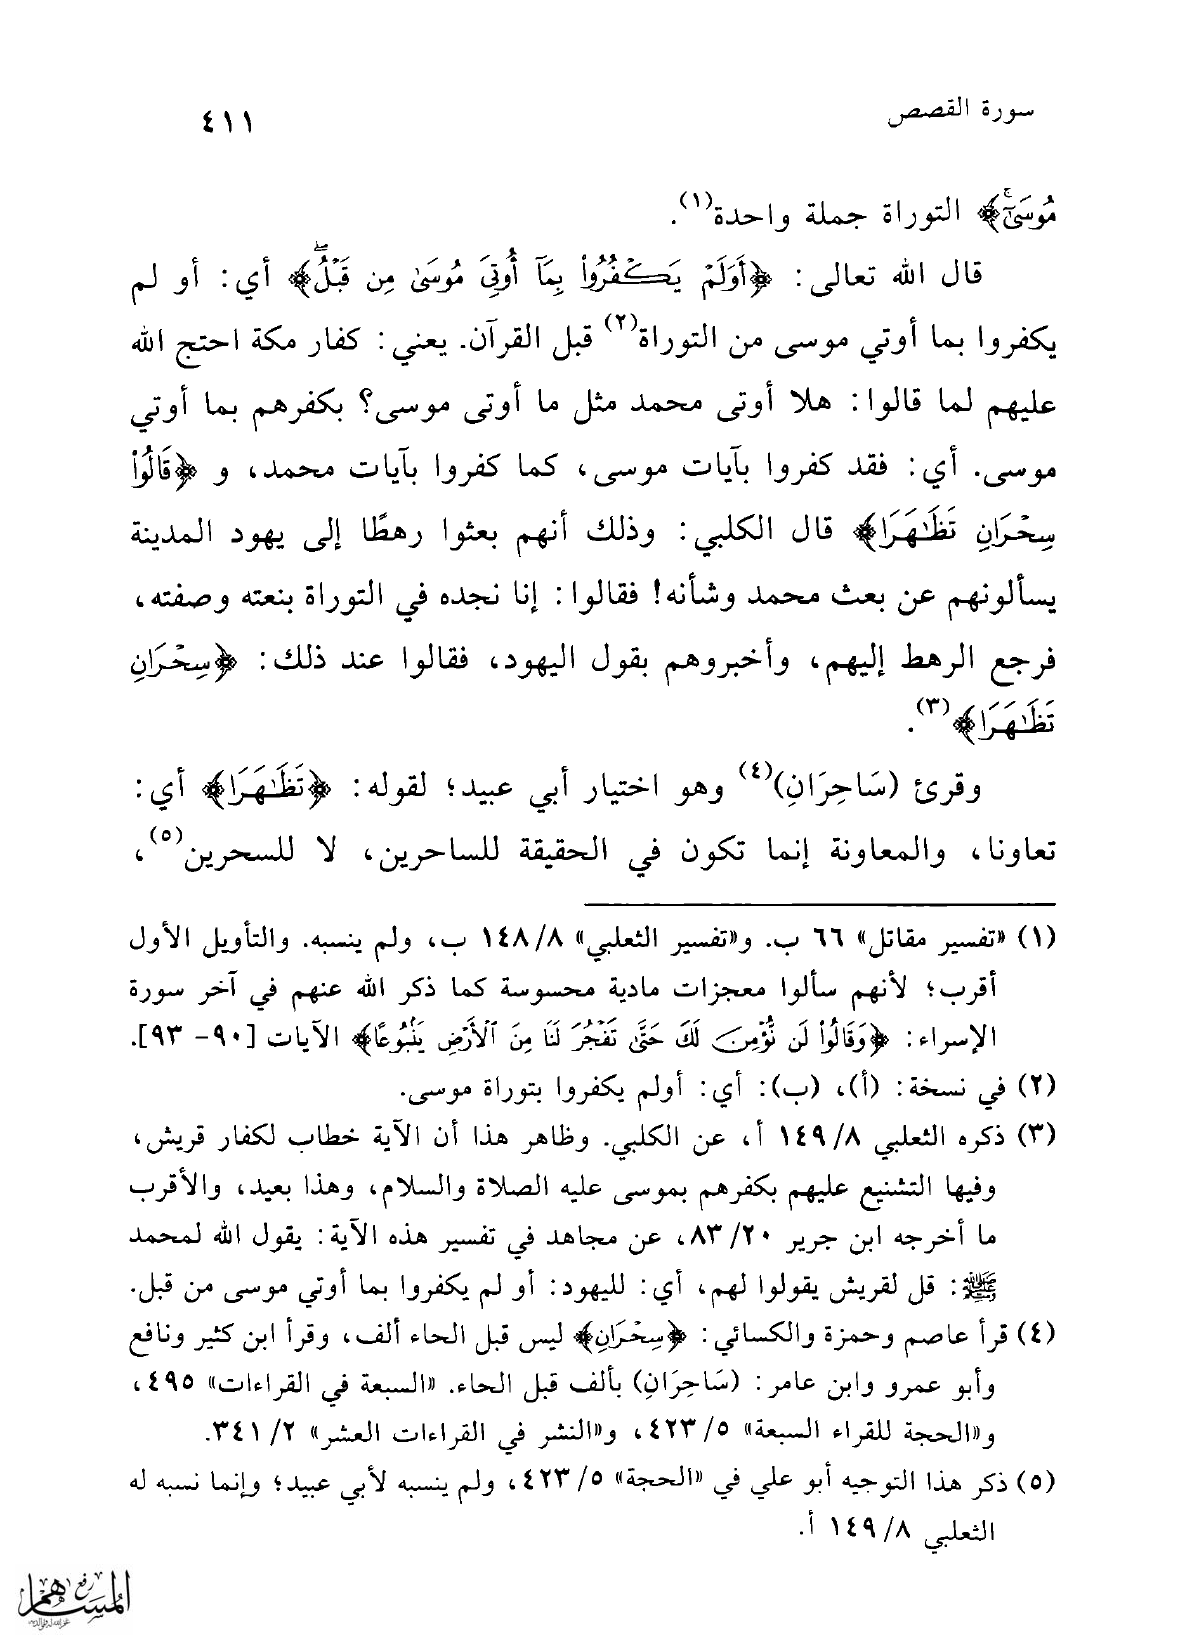 سورة القصص
٤١١
مُوسَىٰٓۚ﴾ التوراة جملة واحدة(١).
قال الله تعالى: ﴿أَوَلَمۡ يَكۡفُرُواْ بِمَآ أُوتِيَ مُوسَىٰ مِن قَبۡلُۖ﴾ أي: أو لم
يكفروا بما أوتي موسى من التوراة(٢) قبل القرآن. يعني: كفار مكة احتج الله
عليهم لما قالوا: هلا أوتى محمد مثل ما أوتى موسى؟ بكفرهم بما أوتي
موسى. أي: فقد كفروا بآيات موسى، كما كفروا بآيات محمد، و ﴿قَالُواْ
سِحۡرَانِ تَظَٰهَرَا﴾ قال الكلبي: وذلك أنهم بعثوا رهطًا إلى يهود المدينة
يسألونهم عن بعث محمد وشأنه! فقالوا: إنا نجده في التوراة بنعته وصفته،
فرجع الرهط إليهم، وأخبروهم بقول اليهود، فقالوا عند ذلك: ﴿سِحۡرَانِ
تَظَٰهَرَا﴾(٣).
وقرئ (سَاحِرَانِ)(٤) وهو اختيار أبي عبيد؛ لقوله: ﴿تَظَٰهَرَا﴾ أي:
تعاونا، والمعاونة إنما تكون في الحقيقة للساحرين، لا للسحرين(٥)،
(١) «تفسير مقاتل» ٦٦ ب. و«تفسير الثعلبي» ٨/ ١٤٨ ب، ولم ينسبه. والتأويل الأول
أقرب؛ لأنهم سألوا معجزات مادية محسوسة كما ذكر الله عنهم في آخر سورة
الإسراء: ﴿وَقَالُواْ لَن نُّؤۡمِنَ لَكَ حَتَّىٰ تَفۡجُرَ لَنَا مِنَ ٱلۡأَرۡضِ يَنۢبُوعًا﴾ الآيات [٩٠- ٩٣].
(٢) في نسخة: (أ)، (ب): أي: أولم يكفروا بتوراة موسى.
(٣) ذكره الثعلبي ٨/ ١٤٩ أ، عن الكلبي. وظاهر هذا أن الآية خطاب لكفار قريش،
وفيها التشنيع عليهم بكفرهم بموسى عليه الصلاة والسلام، وهذا بعيد، والأقرب
ما أخرجه ابن جرير ٢٠/ ٨٣، عن مجاهد في تفسير هذه الآية: يقول الله لمحمد
ﷺ: قل لقريش يقولوا لهم، أي: لليهود: أو لم يكفروا بما أوتي موسى من قبل.
(٤) قرأ عاصم وحمزة والكسائي: ﴿سِحۡرَانِ﴾ ليس قبل الحاء ألف، وقرأ ابن كثير ونافع
وأبو عمرو وابن عامر: (سَاحِرَانِ) بألف قبل الحاء. «السبعة في القراءات» ٤٩٥،
و«الحجة للقراء السبعة» ٥/ ٤٢٣، و«النشر في القراءات العشر» ٢/ ٣٤١.
(٥) ذكر هذا التوجيه أبو علي في «الحجة» ٥/ ٤٢٣، ولم ينسبه لأبي عبيد؛ وإنما نسبه له
الثعلبي ٨/ ١٤٩ أ.